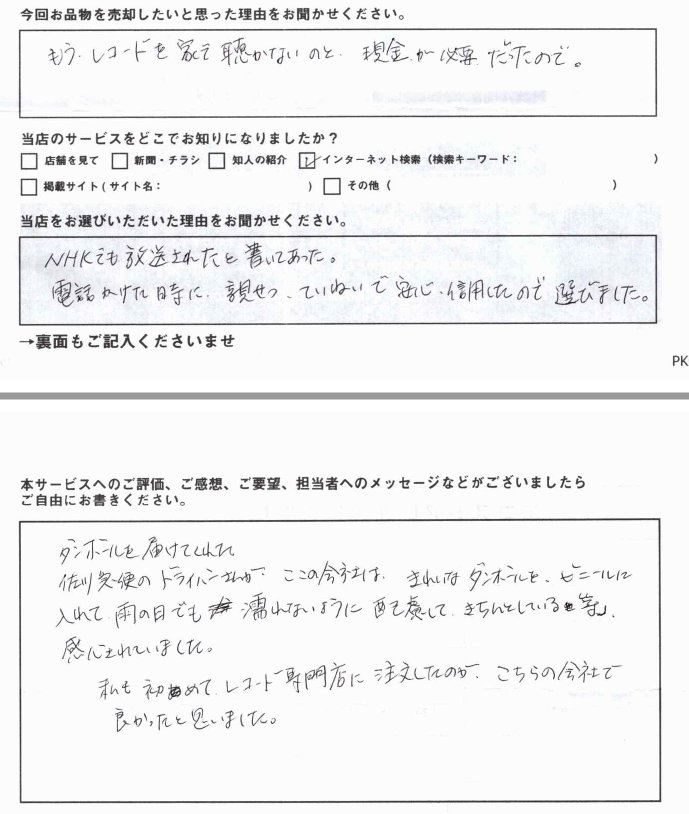 今回お品物を売却したいと思った理由をお聞かせください。
もう、レコードを家で聴かないのと、現金が必要だったので。
当店のサービスをどこでお知りになりましたか？
□ 店舗を見て □ 新聞・チラシ □ 知人の紹介 ☑ インターネット検索（検索キーワード： ）
□ 掲載サイト(サイト名： ) □ その他（ ）
当店をお選びいただいた理由をお聞かせください。
NHKでも放送されたと書いてあった。
電話かけた時に、親せつ、ていねいで安心、信用したので選びました。
→裏面もご記入くださいませ
PK
本サービスへのご評価、ご感想、ご要望、担当者へのメッセージなどがございましたら
ご自由にお書きください。
ダンボールを届けてくれた
佐川急便のドライバーさんが、ここの会社は、きれいなダンボールを、ビニールに
入れて、雨の日でも濡れないように配慮して、きちんとしている等」、
感心されていました。
私も初めて、レコード専門店に注文したのが、こちらの会社で
良かったと思いました。